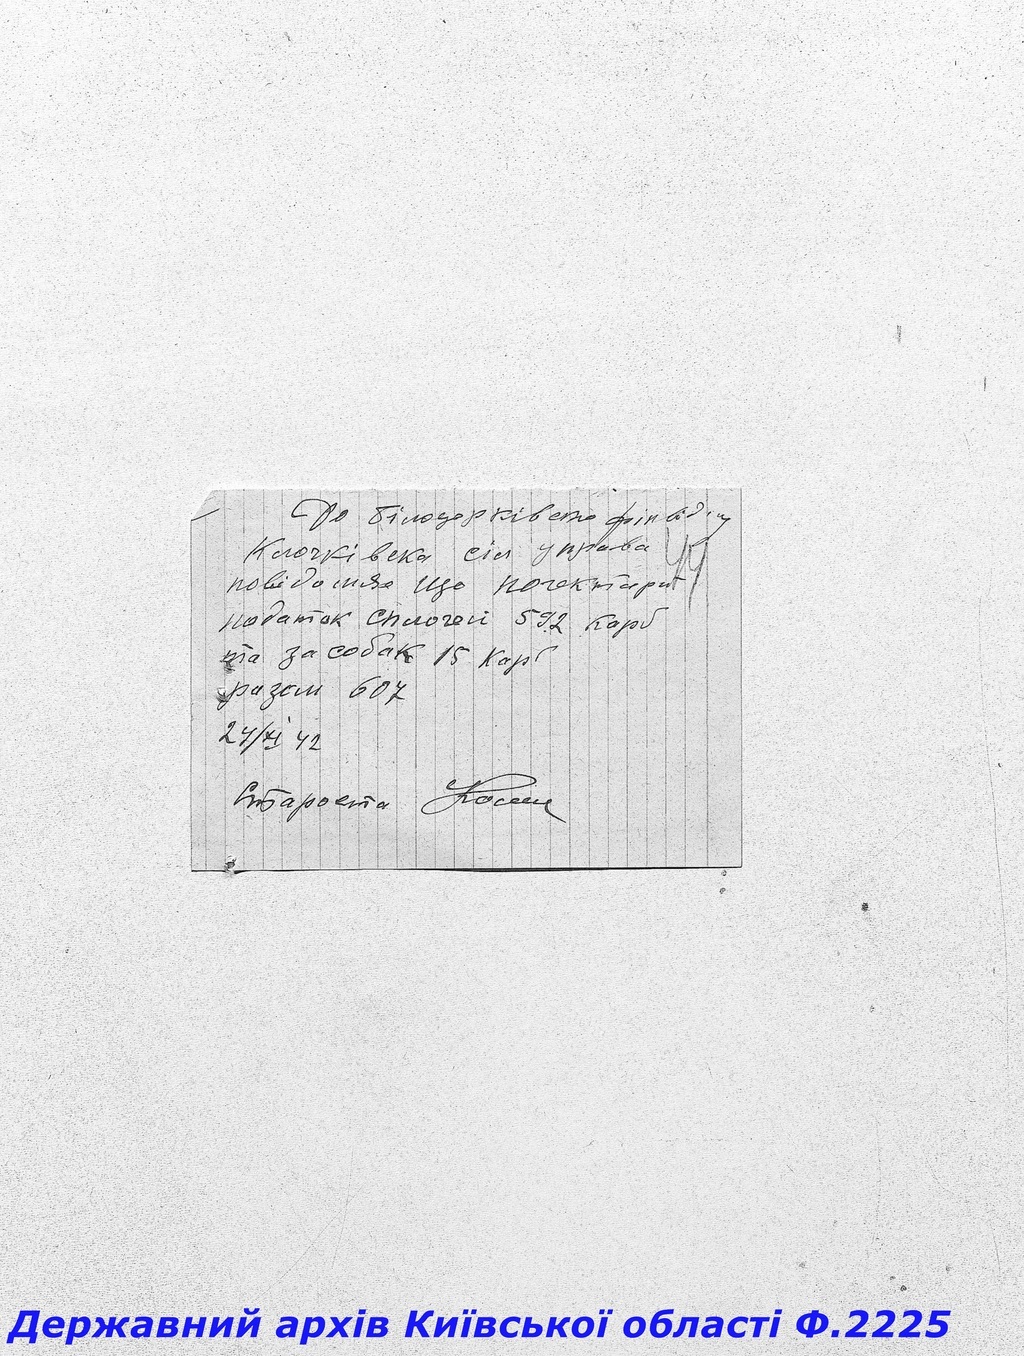 До Білоцерківсько фінвідділу
Клочківська сіл управа 44
повідомля що погектарн
податок сплочені 592 карб
та за собак 15 карб
разом 607
24/XI 42
Староста
Державний архів Київської області Ф.2225